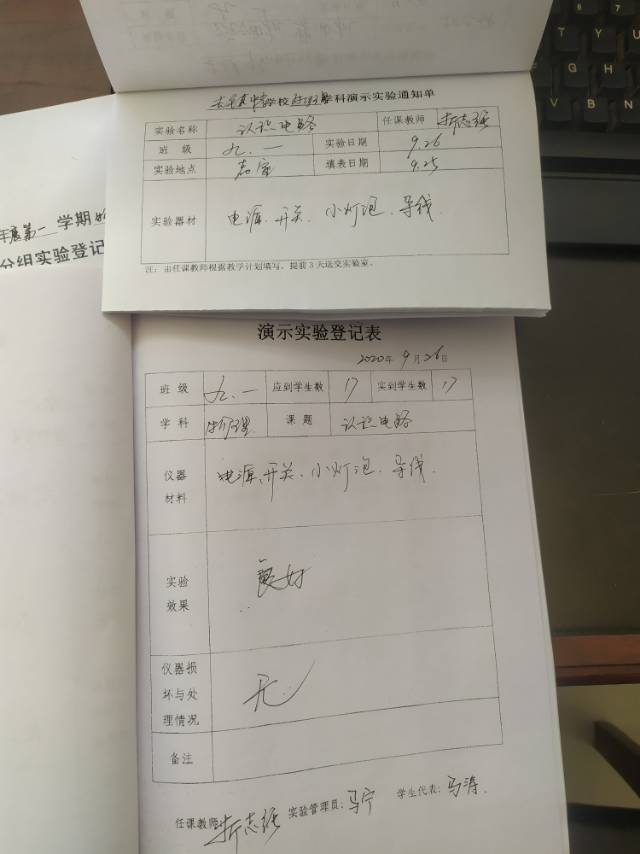 学校物理学科演示实验通知单
实验名称 认识电路 任课教师 折志强
班级 九.一 实验日期 9.26
实验地点 填表日期 9.25
实验器材 电源.开关.小灯泡.导线.
注:由任课教师根据教学计划填写,提前3天送交实验室。
年度第一学期
分组实验登记
演示实验登记表
2020年9月26日
班级 九.一 应到学生数 17 实到学生数 17
学科 物理 课题 认识电路
仪器材料 电源、开关、小灯泡.导线.
实验
效果
良好
仪器损
坏与处
理情况
无
备注
任课教师:折志强 实验管理员:马宁 学生代表:马涛.